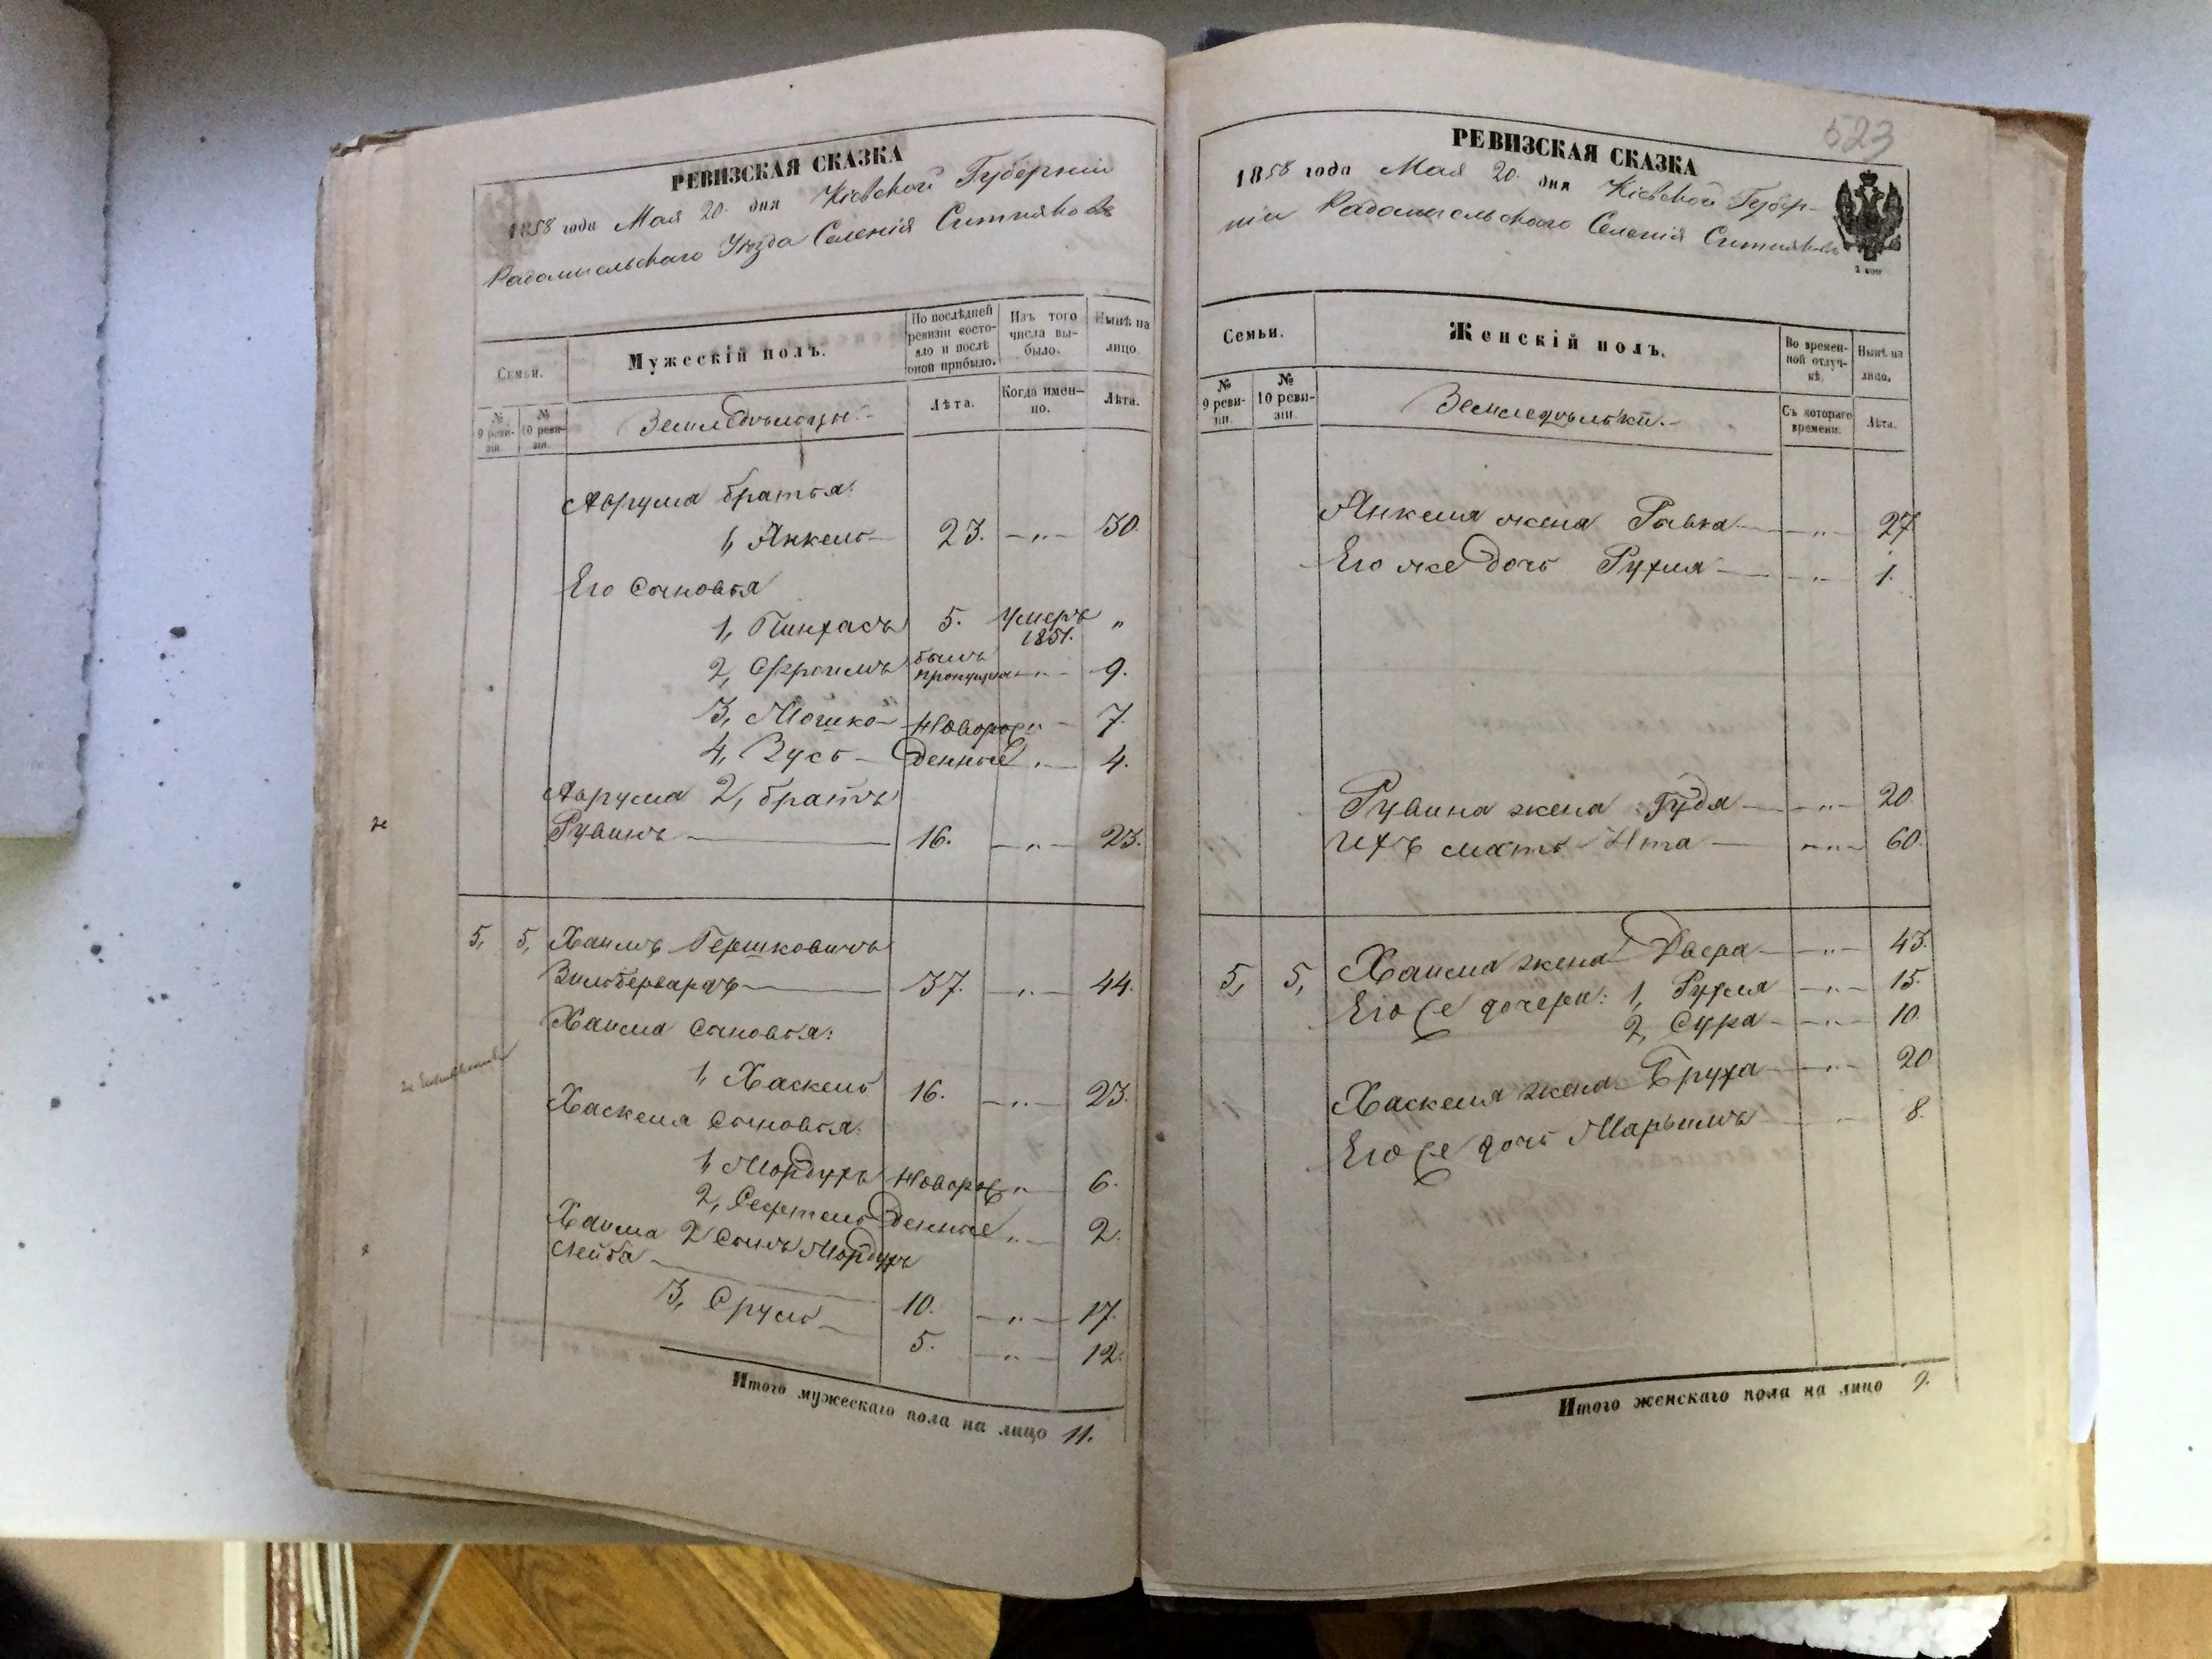 РЕВИЗСКАЯ СКАЗКА
1858 года Мая 20 дня Кіевской Губерніи
Радомысльскаго Уѣзда Селенія Ситняковъ
Семьи.
Мужескій полъ.
По послѣдней ревизіи состояло и послѣ оной прибыло.
Изъ того числа выбыло.
Нынѣ на лицо
№ 9 ревизіи.
№ 10 ревизіи.
Земледѣльцы.
Лѣта.
Когда именно.
Лѣта.
Аврума братья:
1, Янкель 23. „ 30.
Его сыновья
1, Пинхасъ 5. Умеръ 1851. „
2, Фроимъ былъ 9.
3, Мошко Новорож „ 7.
4, Зусь денные „ 4.
Аврума 2, братъ
Рувинъ 16. „ 23.
5, 5, Хаимъ Гершковичъ
Зильберваргъ 37. „ 44.
Хаима сыновья:
1, Хаскель 16. „ 23.
Хаскеля сыновья:
1, Мордухъ Новорож „ 6.
2, денные „ 2.
Хаима 2 сынъ Мордухъ
Лейба 10. „ 17.
3, Сруль 5. „ 12.
Итого мужескаго пола на лицо 11.
523
РЕВИЗСКАЯ СКАЗКА
1858 года Мая 20 дня Кіевской Губер-
ніи Радомысльскаго Селенія Ситняковъ
Семьи.
Женскій полъ.
Во временной отлучкѣ.
Нынѣ на лицо.
№ 9 ревизіи.
№ 10 ревизіи.
Земледѣлки.
Съ котораго времени.
Лѣта.
Янкеля жена Ривка „ 27
Его же дочь Рухля „ 1.
Рувина жена Гудя „ 20
Ихъ мать Ита „ 60.
5, 5, Хаима жена Двера „ 43.
Его же дочери: 1, Рухля „ 15.
2, Сура „ 10.
Хаскеля жена Бруха „ 20
Его же дочь Марьимъ „ 8.
Итого женскаго пола на лицо 9.